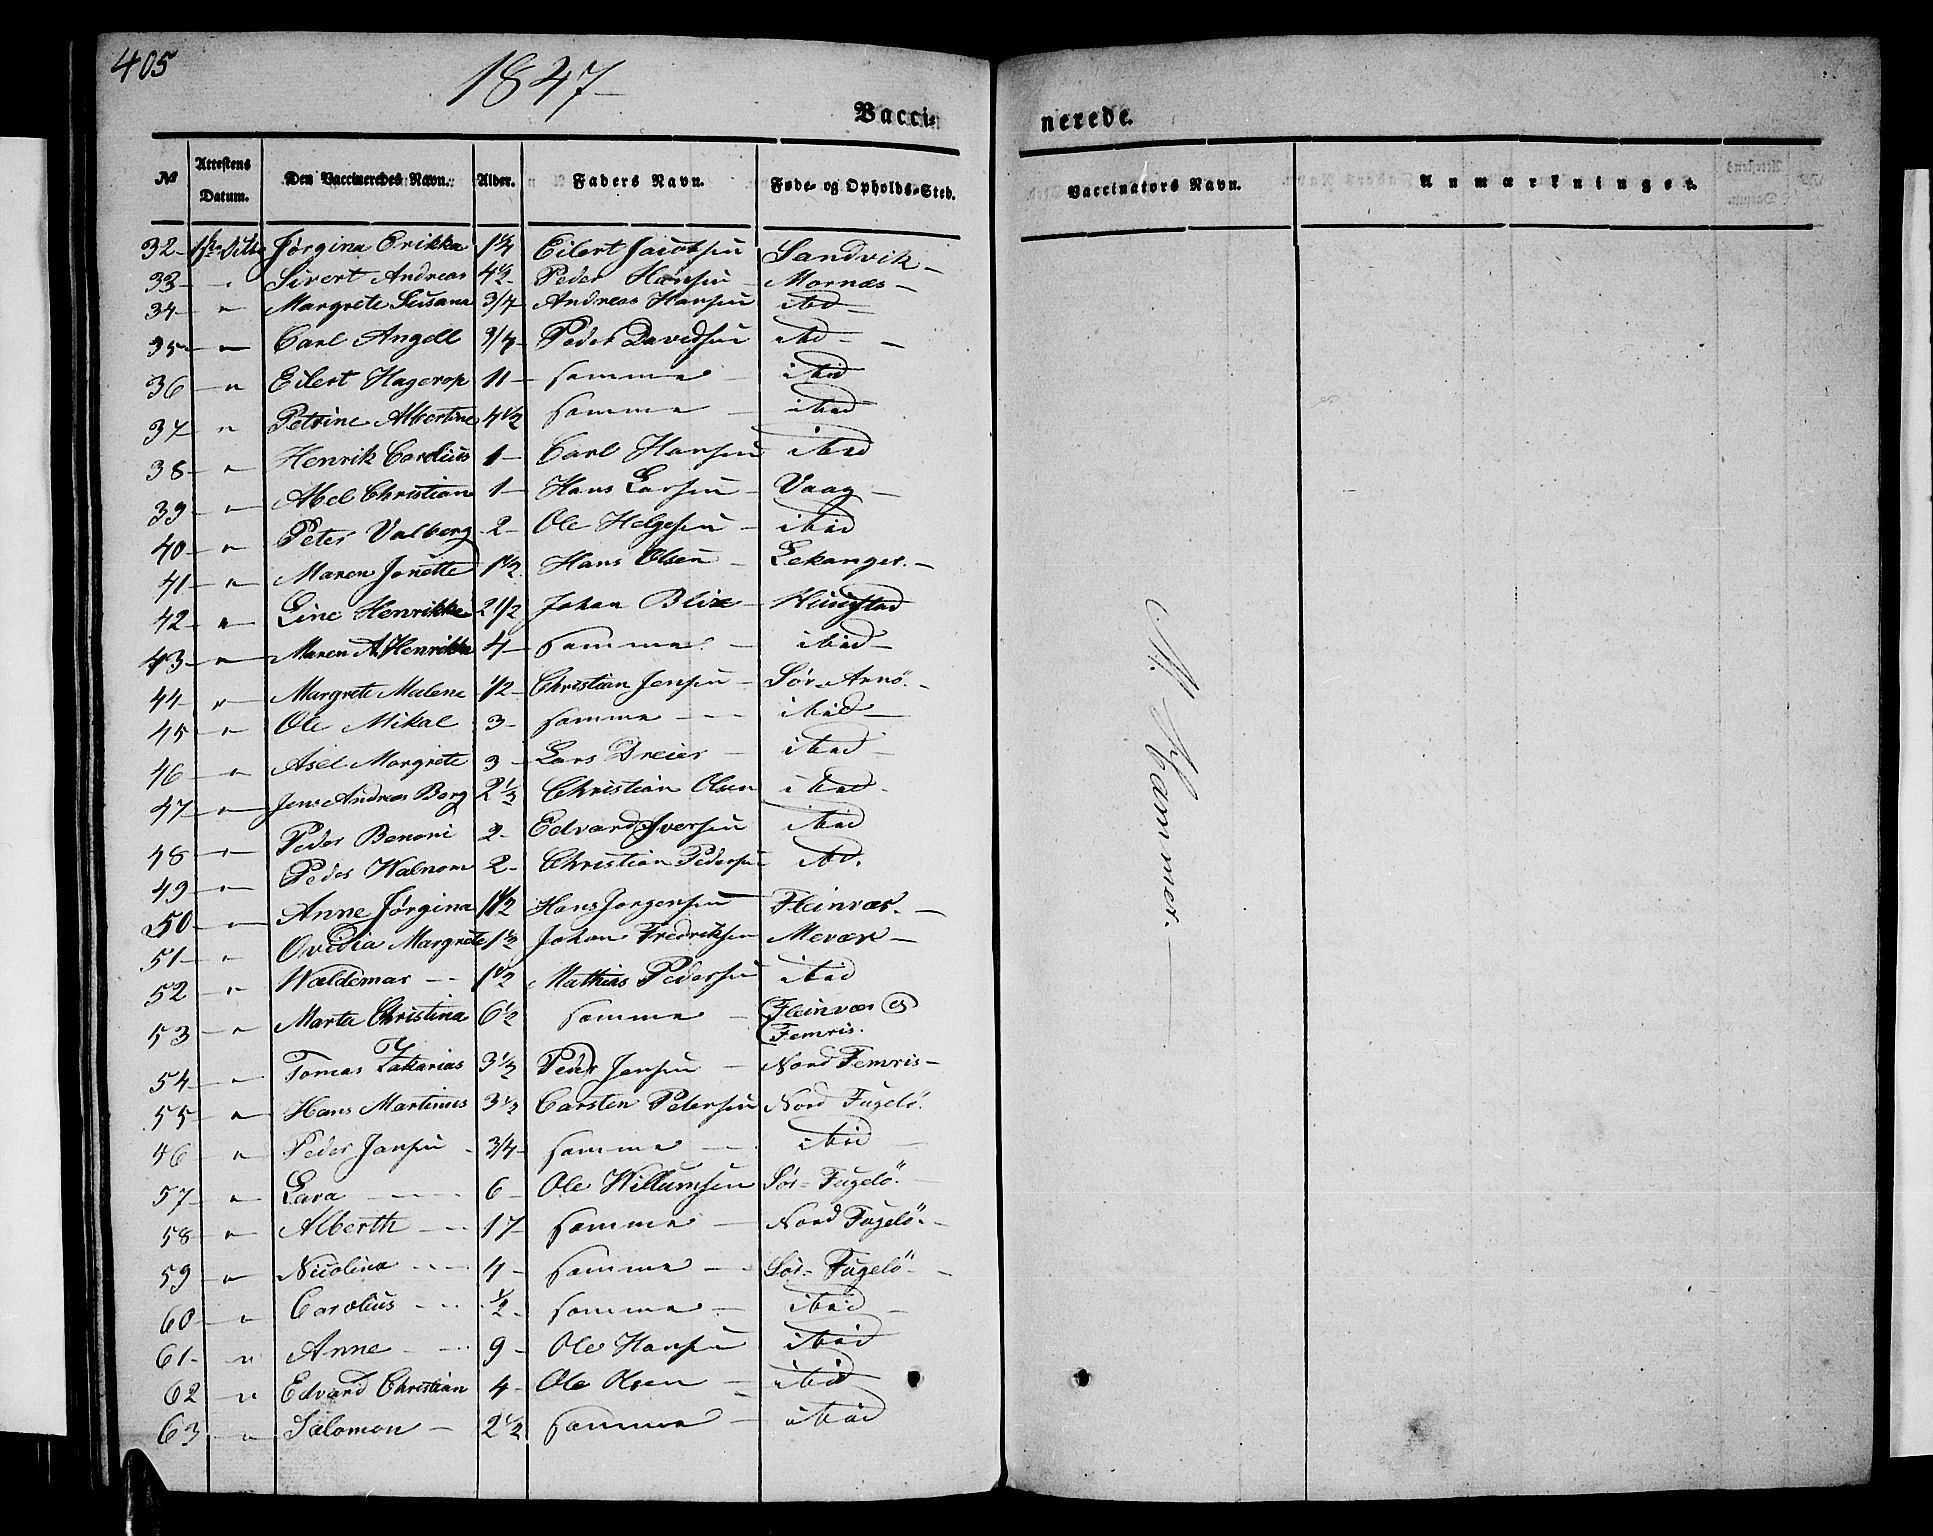 405
1847
Vacci-
nerede.
№ Attestens Datum. Den Vaccineredes Navn. Alder. Faders Navn. Føde- og Opholds-Sted. Vaccinators Navn. Anmærkninger.
32 Jørgina Erikka 1½ Eilert Jacobsen Sandvik
33 " Sivert Andreas 4½ Peder Hansen Mornæs
34 " Margrete Susana 3/4 Andreas Hansen ibd
35 " Carl Angell 3/4 Peder Davidsen ibd
36 " Eilert Hagerop 11 samme ibid
37 " Petrine Albertine 4½ samme ibid
38 " Henrik Carolius 1 Carl Hansen ibid
39 " Abel Christian 1 Hans Larsen Vaag
40 " Peter Valberg 2 Ole Helgesen ibid
41 " Maren Jonette 1½ Hans Olsen Lekanger.
42 " Line Henrikke 2 1/2 Johan Blix
43 " Maren A. Henrikka 4 samme ibid
44 " Margrete Malene 1/2 Christian Jensen Sör-Arnö.
45 " Ole Mikal 3 samme ibid
46 " Asel Margrete 3 Lars Dreier ibid
47 " Jens Andreas Borg 2½ Christian Olsen ibid
48 " Peder Benoni 2 Edvard Iversen ibid
49 " Peder Walnom 2 Christian Pedersen ibd.
50 " Anne Jørgina 1½ Hans Jørgensen Fleinvær.
51 " Ovidia Margrete 1½ Johan Fredriksen Mevær
52 " Waldemar 1½ Mathias Pedersen ibid
53 " Marta Christina 6½ samme Fleinvær og
Femris.
54 " Tomas Zakarias 3½ Peder Jensen Nord Femris
55 " Hans Martinus 3½ Carsten Petersen Nord Fugelö.
46 " Peder Jansen 3/4 samme ibid
57 " Lava 6 Ole Willumsen Sör-Fugelö.
58 " Alberth 17 samme Nord Fugelö.
59 " Nicolina 4 samme Sör-Fugelö
60 " Carolius ½ samme ibid
61 " Anne 9 Ole Hansen ibid
62 " Edvard Christian 4 Ole Olsen ibid
63 " Salomon 2½ samme ibid